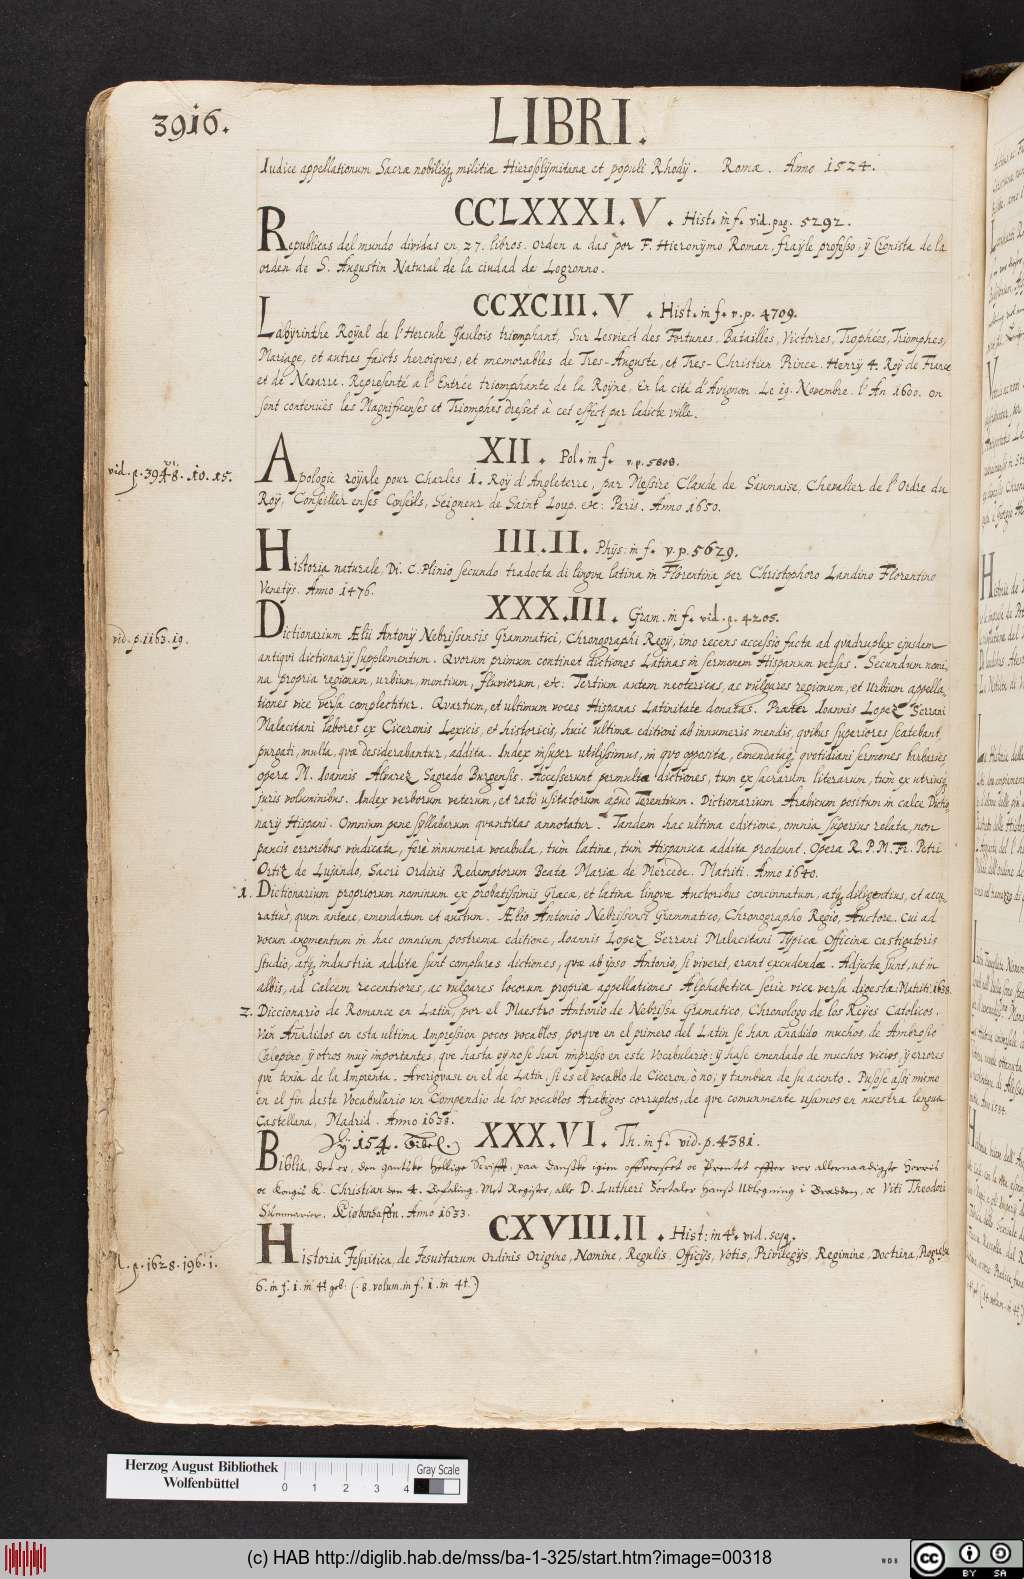 3916.
LIBRI.
Iudice appellationum Sacræ nobilisq; militiæ Hierosolÿmitanæ et populi Rhodÿ. Romæ. Anno 1524.
CCLXXXI.V. Hist. in f. vid. pag. 5292.
Republicas del mundo dividas en 27. libros. Orden a das por F. Hieronÿmo Roman, fraÿle professo, ÿ Cronista de la
orden de S. Augustin Natural de la ciudad de Logronno.
CCXCIII.V. Hist. in f. v. p. 4709.
Labyrinthe Roÿal de l'Hercule Gaulois triomphant, Sur Lesviect des Fortunes, Batailles, Victoires, Trophées, Triomphes,
Mariage, et autres faicts heroiqves, et memorables de Tres-Auguste, et Tres-Christien Prince. Henrÿ 4. Roÿ de France
et de Navarre. Representé a l'Entrée triomphante de la Roÿne, En la cité d'Avignon. Le 19. Novembre. l'An 1600. on
sont contenuës les Magnificenses et Triomphes dreset à cet effect par ladicte ville.
XII. Pol. in f. v. p. 5808.
vid. p. 3948. 10. 15.
Apologie roÿale pour Charles I. Roÿ d'Angleterre, par Messire Claude de Saumaise, Chevalier de l'Ordre du
Roÿ, Conseiller enses Conseils, Seigneur de Saint Loup. etc: Paris. Anno 1650.
III.II. Phÿs. in f. v. p. 5629.
Historia naturale, Di. C. Plinio secundo tradocta di lingva latina in Florentina per Christophoro Landino Florentino
Venetÿs. Anno 1476.
XXX.III. Gram. in f. vid. p. 4205.
vid. p. 1163. 19.
Dictionarium Ælii Antonÿ Nebrissensis Grammatici, Chronographi Regÿ, imo recens accessio facta ad qvadruplex ejusdem
antiqvi dictionarÿ supplementum. Qvorum primum continet dictiones Latinas in sermonem Hispanum versas. Secundum nomi-
na propria regionum, urbium, montium, fluviorum, etc: Tertium autem neotericas, ac vulgares regionum, et Urbium appella-
tiones vice versa complectitur. Qvartum, et ultimum voces Hispanas Latinitate donatas. Præter Ioannis Lopez Serrani
Malacitani labores ex Ciceronis Lexicis, et historicis, huic ultimæ editioni ab innumeris mendis, qvibus superiores scatebant,
purgati, multa, qvæ desiderabantur, addita. Index insuper utilissimus, in qvo opposita, emendatæq; qvotidiani sermones barbaries
opera M. Ioannis Alvarez Sagredo Burgensis. Accesserunt permultæ dictiones, tum ex sacrarum literarum, tum ex utriusq;
juris voluminibus. Index verborum veterum, et rato usitatorum apud Terentium. Dictionarium Arabicum positum in calce Dictio-
narÿ Hispani. Omnium pene syllabarum qvantitas annotatur. Tandem hac ultima editione, omnia superius relata, non
paucis erroribus vindicata, ferè innumera vocabula, tum latina, tum Hispanica addita prodeunt. Opera R. P. M. Fr. Petri
Ortiz de Lujando, Sacri Ordinis Redemptorum Beatæ Mariæ de Mercede. Matriti. Anno 1640.
1. Dictionarium propriorum nominum ex probatissimis Græcæ, et latinæ lingvæ Auctoribus concinnatum, atq; diligentius, et accu-
ratiùs, quam anteac, emendatum et auctum. Ælio Antonio Nebrissensi Grammatico, Chronographo Regio, Auctore. Cui ad
vocum augmentum in hac omnium postrema editione, Ioannis Lopez Serrani Malacitani Tÿpicæ Officinæ castigatoris
studio, atq; industria additæ sunt complures dictiones, qvæ ab ipso Antonio, si viveret, erant excudendæ. Adjectæ sunt, ut in
albis, ad Calcem recentiores, ac vulgares locorum propriæ appellationes Alphabetica serie vice versa digestæ. Matriti. 1638.
2. Diccionario de Romance en Latin, por el Maestro Antonio de Nebrissa Gramatico, Chronologo de los Reÿes Catolicos.
Van Añadidos en esta ultima Impression pocos vocablos, porqve en el primero del Latin se han añadido muchos, de Ambrosio
Calepino, ÿ otros muÿ importantes, qve hasta oÿ no se han impresso en este Vocabulario: ÿ hase emendado de muchos vicios, ÿ errores
qve tenia de la Imprenta. Averigvase en el de Latin, si es el vocablo de Ciceron, ò no; y tambien de su acento. Pusose assi mismo
en el fin deste Vocabulario un Compendio de los vocablos Arabigos corruptos, de qve comunmente usamos en nuestra lengua
Castellana. Madrid. Anno 1638.
154. Bibel. XXX.VI. Th. in f. vid. p. 4381.
Biblia, det er, den gantske hellige Scrifft, paa Danske igien offverseet oc Prentet effter vor allernaadigste Herris
oc Kongis K. Christian den 4. Befaling. Met Register, alle D. Lutheri Fortaler Udlegning i Bredden, oc Viti Theodori
Summarier. Kiøbenhafn. Anno 1633.
CXVIII.II. Hist: in 4t. vid. seqq.
p. 1628. 196. 1.
Historia Jesuitica, de Jesuitarum Ordinis Origine, Nomine, Regulis, Officÿs, Votis, Privilegÿs, Regimine, Doctrina, Progressu
6. in f. 1. in 4t. geb: (. 8. volum. in f. 1. in 4t.)
Herzog August Bibliothek
Wolfenbüttel
0 1 2 3 4
Gray Scale
(c) HAB http://diglib.hab.de/mss/ba-1-325/start.htm?image=00318
WDB
cc BY SA